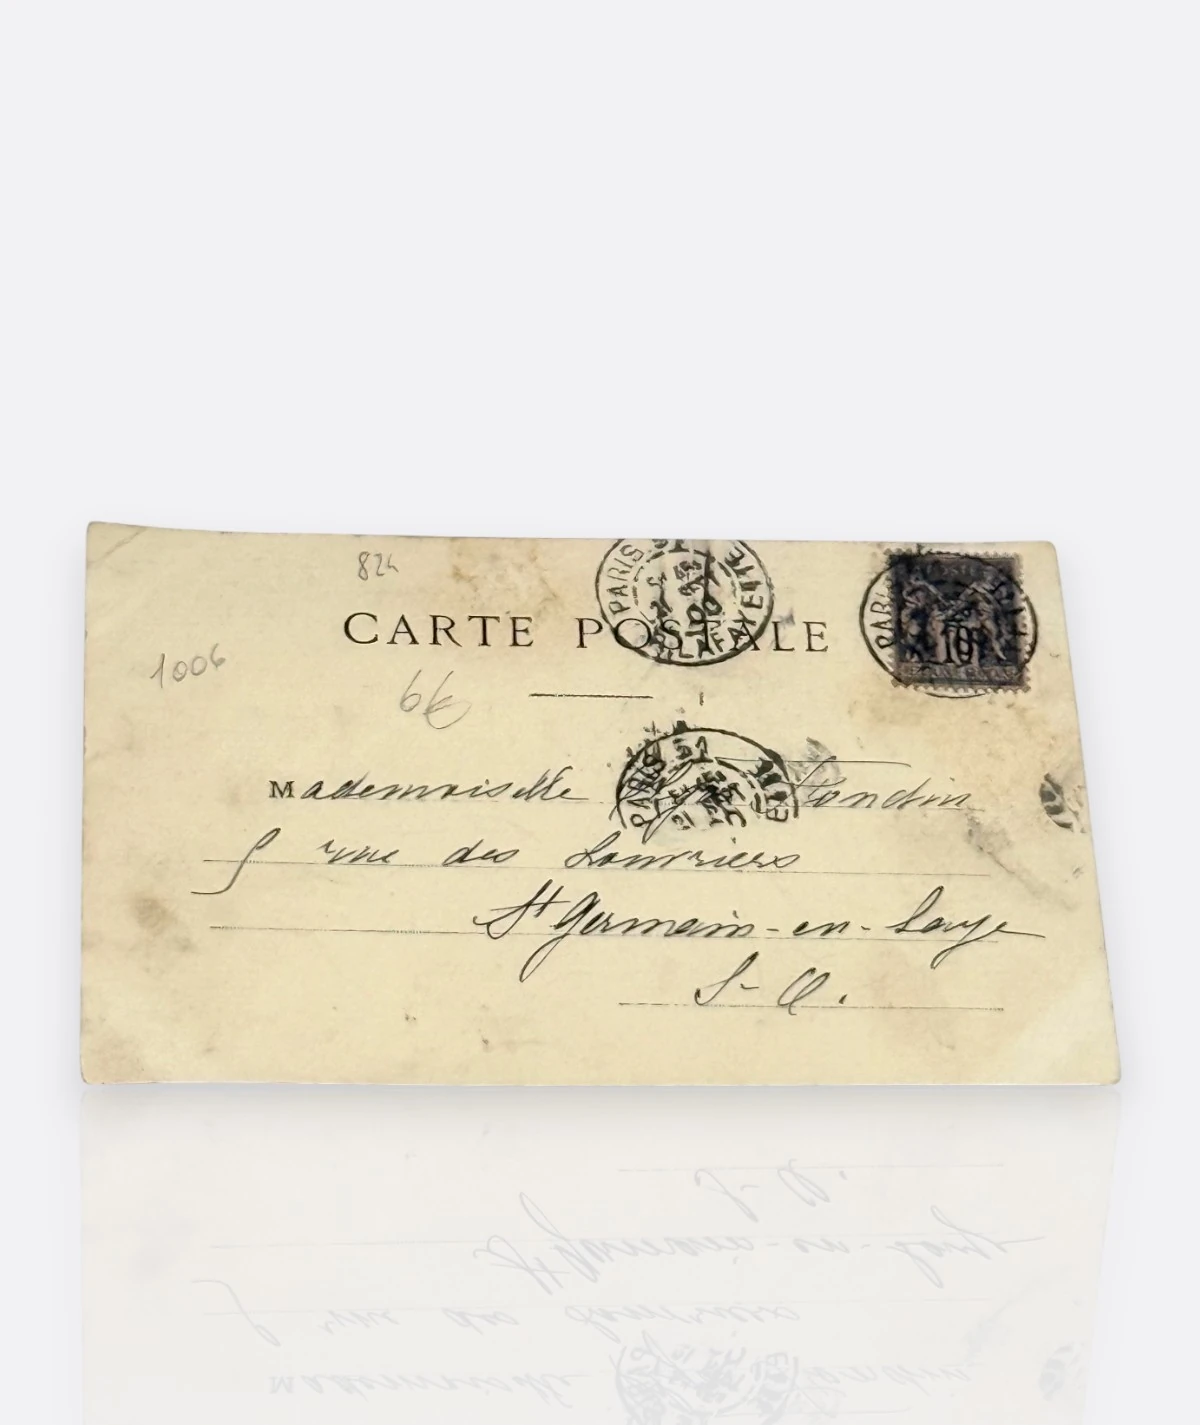 824
CARTE POSTALE
1006
6€
PARIS 51
00
R. LAFAYETTE
PARIS
10
Mademoiselle Tondin
5 rue des Louviers
St Germain-en-Laye
S-O.
PARIS 51